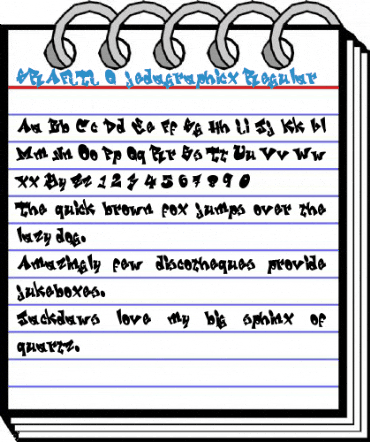 GRAFITI @ Jedagraphicx Regular
Aa Bb Cc Dd Ee Ff Gg Hh Ii Jj Kk Ll
Mm Nn Oo Pp Qq Rr Ss Tt Uu Vv Ww
Xx Yy Zz 1 2 3 4 5 6 7 8 9 0
The quick brown fox jumps over the
lazy dog.
Amazingly few discotheques provide
jukeboxes.
Jackdaws love my big sphinx of
quartz.